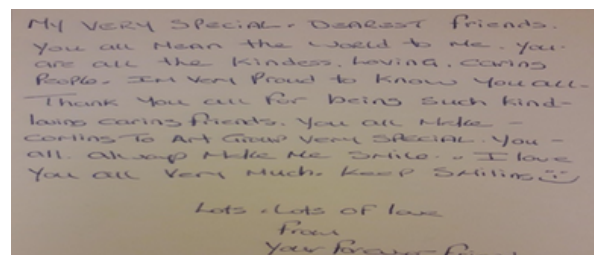 My VERY SPECIAL. DEAREST friends.
You all Mean the world to Me. You.
are all the kindess. Loving. Caring
People. IM Very Proud to know you all.
Thank you all for being such kind-
loving caring friends. You all Make -
Coming To Art Group Very SPECIAL. You -
all. always Make Me Smile.. I love
You all Very Much. Keep Smiling
Lots. Lots of love
From
Your Forever Friend